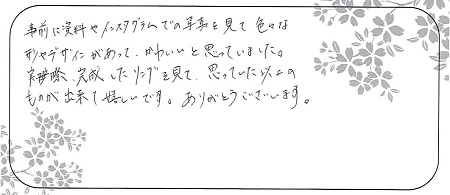 事前に資料やインスタグラムでの写真を見て色々な
形やデザインがあって、かわいいと思っていました。
実際、完成したリングを見て、思っていた以上の
ものが出来て嬉しいです。ありがとうございます。